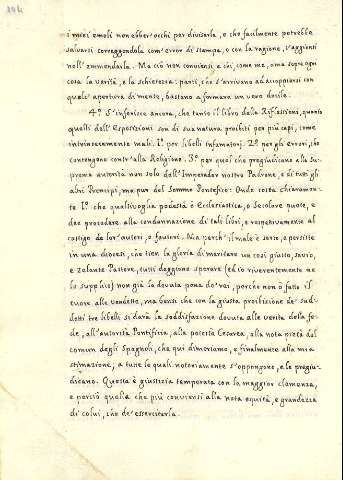 i miei emoli non ebber'occhi per divisarla, e che facilmente potrebbe
salvarsi correggendola com'error di stampa, o con la ragione, s'aggiunti
nell'emmendarla. Ma ciò non conviensi a chi, come me, ama sopr'ogni
cosa la verità, e la schietezza: parti, che s'arrivano ad accoppiarsi con
qualc'apertura di mente, bastano a formare un vero docile.
4.º S'inferisce ancora, che tanto il libro delle Riflessioni, quanto
quelli dell'Esposizioni son di sua natura proibiti per più capi, come
intrinsecamente mali. 1.º per libelli infamatorj. 2.º per gli errori, che
contengono contr'alla Religione. 3.º per quel che pregiudicano alla Su-
prema autorità non solo dell'Imperador nostro Padrone, e di tutti gli
altri Principi, ma pur del Sommo Pontefice: Onde costa chiaramen-
te 1.º che qualsivoglia podestà è Ecclesiastica, o Secolare puote, e
dee procedere alla condannazione di tali libri, e respettivamente al
castigo de lor'autori, o fautori. Ma perch'il male è sorto, e persiste
in una diocesi, che tien la gloria di meritare un così giusto, savio,
e zelante Pastore, tutti deggiono sperare (ed io riverentemente ne
lo supplico) non già la dovuta pena de' rei, perchè non ò fatto il
cuore alle vendette, ma bensì che con la giusta proibizione de' sud-
detti tre libelli si darà la soddisfazion dovuta alle verità della fe-
de, all'autorità Pontificia, alla potestà Cesarea, alla nota pietà del
comun degli Spagnoli, che qui dimoriamo, e finalmente alla mia
stimazione; a tutte le quali notoriamente s'oppongono, e le pregiu-
dicano. Questa è giustizia temperata con la maggior clemenza,
e perciò quella che più conviensi alla nota equità, e grandezza
di colui, che de' essercitarla.